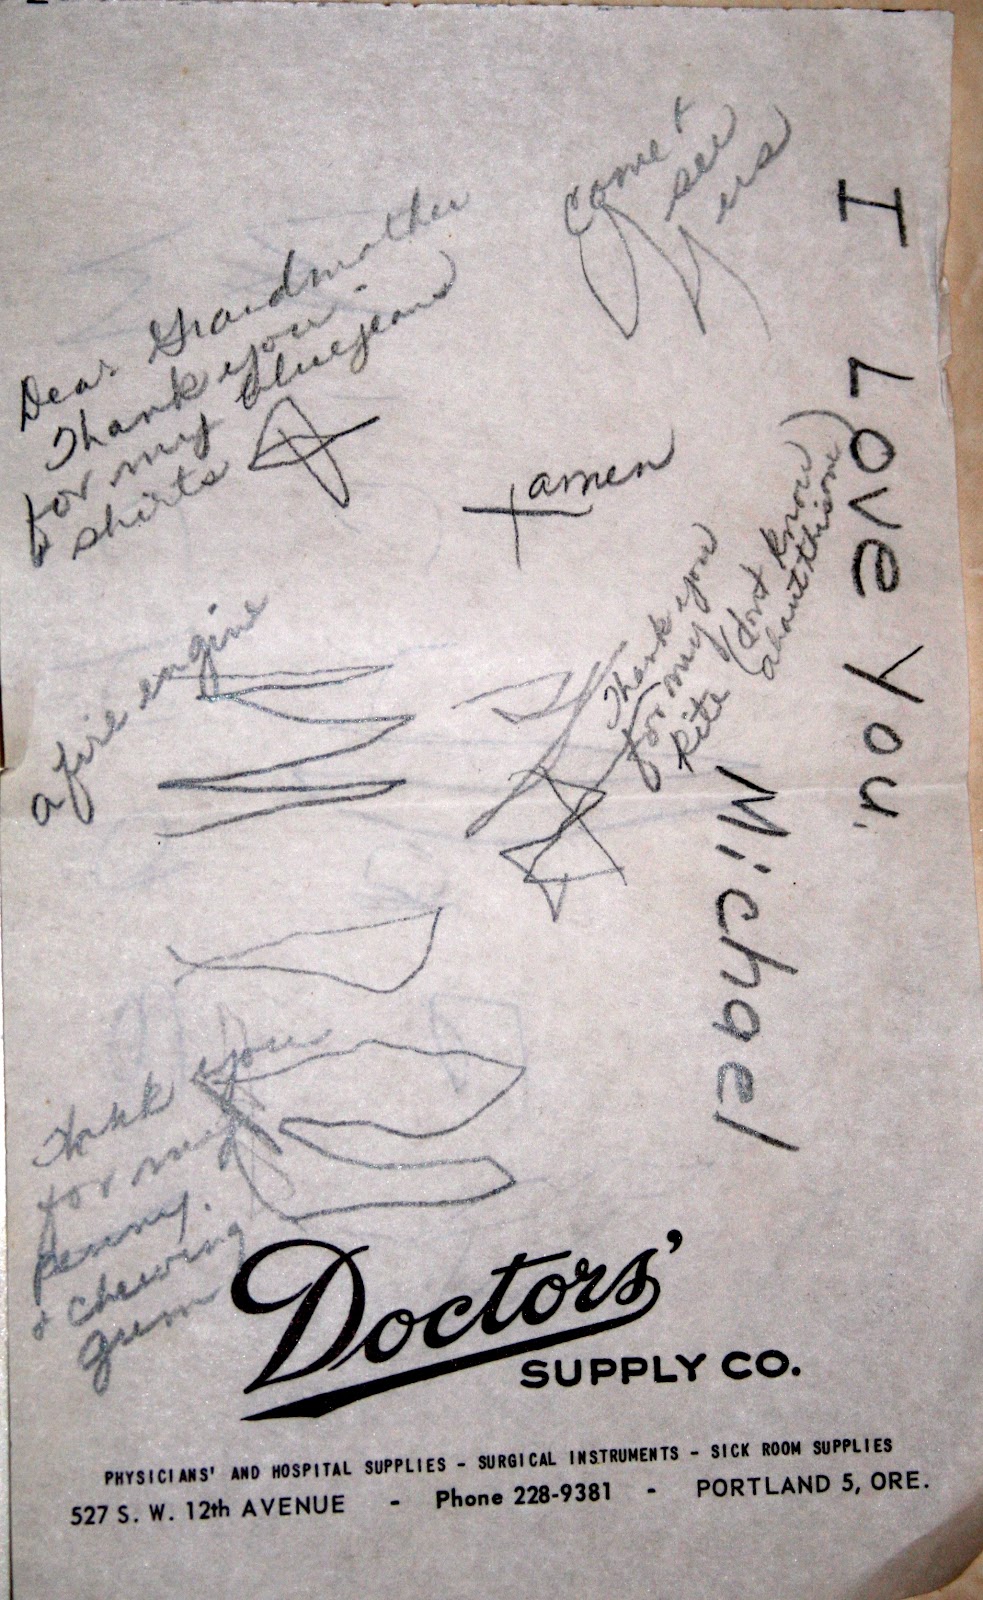 Dear Grandmother
Thank you
for my bluejeans
& shirts
Come &
see
yers
x amen
a fire engine
Thank you
for my
kite (dont know
about this one)
I Love You,
Michael
Thank you
for my
penny.
& chewing
gum
Doctors'
SUPPLY CO.
PHYSICIANS' AND HOSPITAL SUPPLIES – SURGICAL INSTRUMENTS – SICK ROOM SUPPLIES
527 S. W. 12th AVENUE - Phone 228-9381 - PORTLAND 5, ORE.